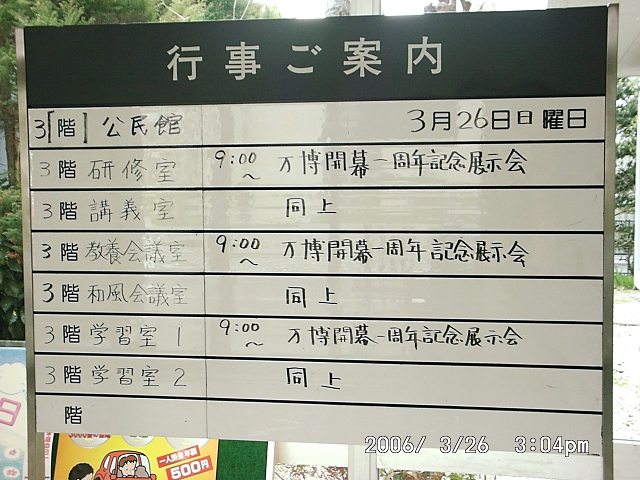 行事ご案内
3[階] 公民館 3月26日日曜日
3階 研修室 9:00〜 万博開幕一周年記念展示会
3階 講義室 同上
3階 教養会議室 9:00〜 万博開幕一周年記念展示会
3階 和風会議室 同上
3階 学習室1 9:00〜 万博開幕一周年記念展示会
3階 学習室2 同上
階
2006/ 3/26 3:04pm
一人掛金年額
500円